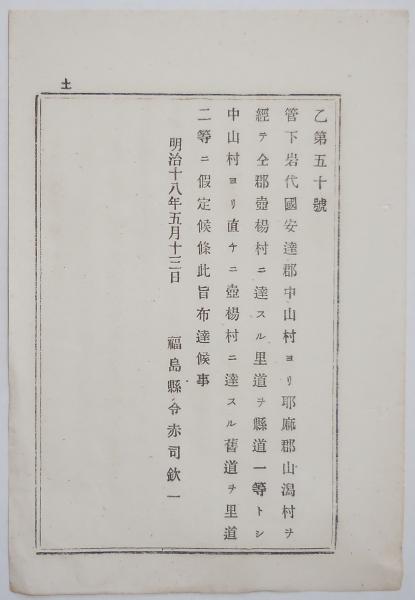 土
乙第五十號
管下岩代國安達郡中山村ヨリ耶麻郡山潟村ヲ
經テ仝郡壺楊村ニ達スル里道ヲ縣道一等トシ
中山村ヨリ直チニ壺楊村ニ達スル舊道ヲ里道
二等ニ假定候條此旨布達候事
明治十八年五月十三日
福島縣令赤司欽一